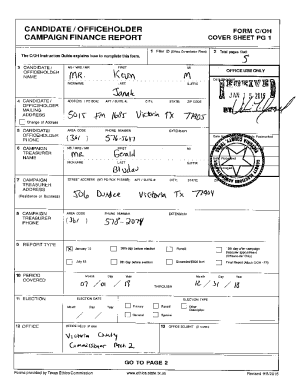 CANDIDATE / OFFICEHOLDER
CAMPAIGN FINANCE REPORT
FORM C/OH
COVER SHEET PG 1
The C/OH Instruction Guide explains how to complete this form.
1 Filer ID (Ethics Commission Filers)
2 Total pages filed:
5
3 CANDIDATE / OFFICEHOLDER NAME
MS / MRS / MR FIRST MI
Mr. Kevin M
NICKNAME LAST SUFFIX
Janak
OFFICE USE ONLY
4 CANDIDATE / OFFICEHOLDER MAILING ADDRESS
Change of Address
ADDRESS / PO BOX; APT / SUITE #; CITY; STATE; ZIP CODE
5015 FM 1685 Victoria TX 77905
5 CANDIDATE / OFFICEHOLDER PHONE
AREA CODE PHONE NUMBER EXTENSION
(361)
6 CAMPAIGN TREASURER NAME
MS / MRS / MR FIRST MI
Mr. Gerald
NICKNAME LAST SUFFIX
7 CAMPAIGN TREASURER ADDRESS
(Residence or Business)
STREET ADDRESS (NO PO BOX PLEASE); APT / SUITE #; CITY; STATE; ZIP CODE
506 Dundee Victoria TX 77904
8 CAMPAIGN TREASURER PHONE
AREA CODE PHONE NUMBER EXTENSION
(361) 578-2074
9 REPORT TYPE
January 15
30th day before election
Runoff
15th day after campaign treasurer appointment (Officeholder Only)
July 15
8th day before election
Exceeded $500 limit
Final Report (Attach C/OH - FR)
10 PERIOD COVERED
Month Day Year
07 / 01 / 18
THROUGH
Month Day Year
12 / 31 / 18
11 ELECTION
ELECTION DATE
Month Day Year
ELECTION TYPE
Primary
Runoff
Other Description
General
Special
12 OFFICE
OFFICE HELD (if any)
Victoria County
Commissioner Pct. 2
13 OFFICE SOUGHT (if known)
GO TO PAGE 2
Forms provided by Texas Ethics Commission
www.ethics.state.tx.us